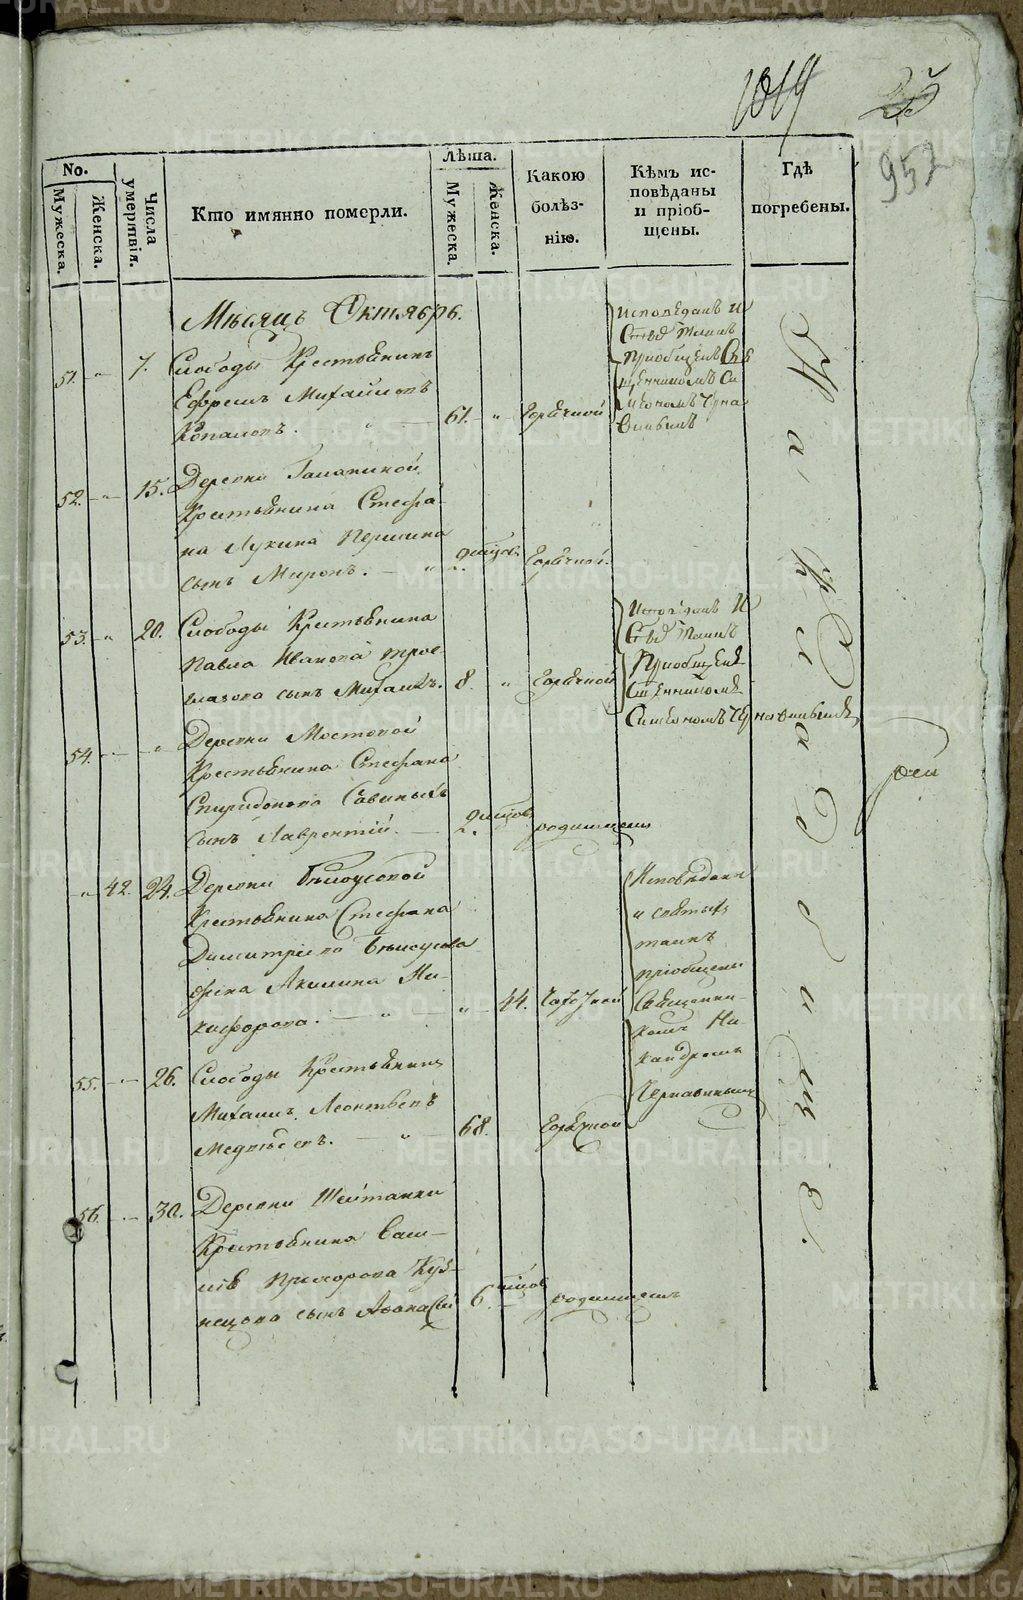 1019
25
952
No.
Мужеска.
Женска.
Числа умертвія.
Кто имянно померли.
Лѣта.
Мужеска.
Женска.
Какою болѣз-
нію.
Кѣмъ ис-
повѣданы
и пріоб-
щены.
Гдѣ
погребены.
Мѣсяцъ Октябрь.
51. " 7. Слободы Крестьянинъ
Ефремъ Михайловъ
Копаловъ. " 61. " Горячкой
Исповѣданъ И
Свтыхъ Таинъ
Пріобщенъ Свя
щенникомъ Си
мономъ Черна
виннымъ
52. " 15. Деревни
Крестьянина Стефа-
на Лукина Першина
сынъ Миронъ. " 2. мѣсяцовъ. Горячкой.
53. " 20. Слободы Крестьянина
Павла Иванова
сынъ Михаилъ. 8. " Горячкой
Исповѣданъ И
Свтыхъ Таинъ
Пріобщенъ
Сщенникомъ
Симономъ Чернавинымъ
54. " " Деревни Мостовой
Крестьянина Стефана
Спиридонова Савиныхъ
сынъ Лаврентій. 2. мѣсяцовъ родимцемъ
" 42. 24. Деревни Бѣлоусовой
Крестьянина Стефана
Димитріева Бѣлоусова
жена Акилина Ни-
кифорова. " " 44. Чахоткой
Исповѣдана
и святыхъ
таинъ
пріобщены
Священни-
комъ Ни-
кандромъ
Чернавинымъ
55. " 26. Слободы Крестьянинъ
Михаилъ Леонтьевъ
Медвѣдевъ. " 68. Горячкой
56. " 30. Деревни Шейтанки
Крестьянина Васи-
лія Прохорова Куз-
нецова сынъ Аѳанасій 6. мѣсяцовъ родимцемъ
На Кладбищѣ.